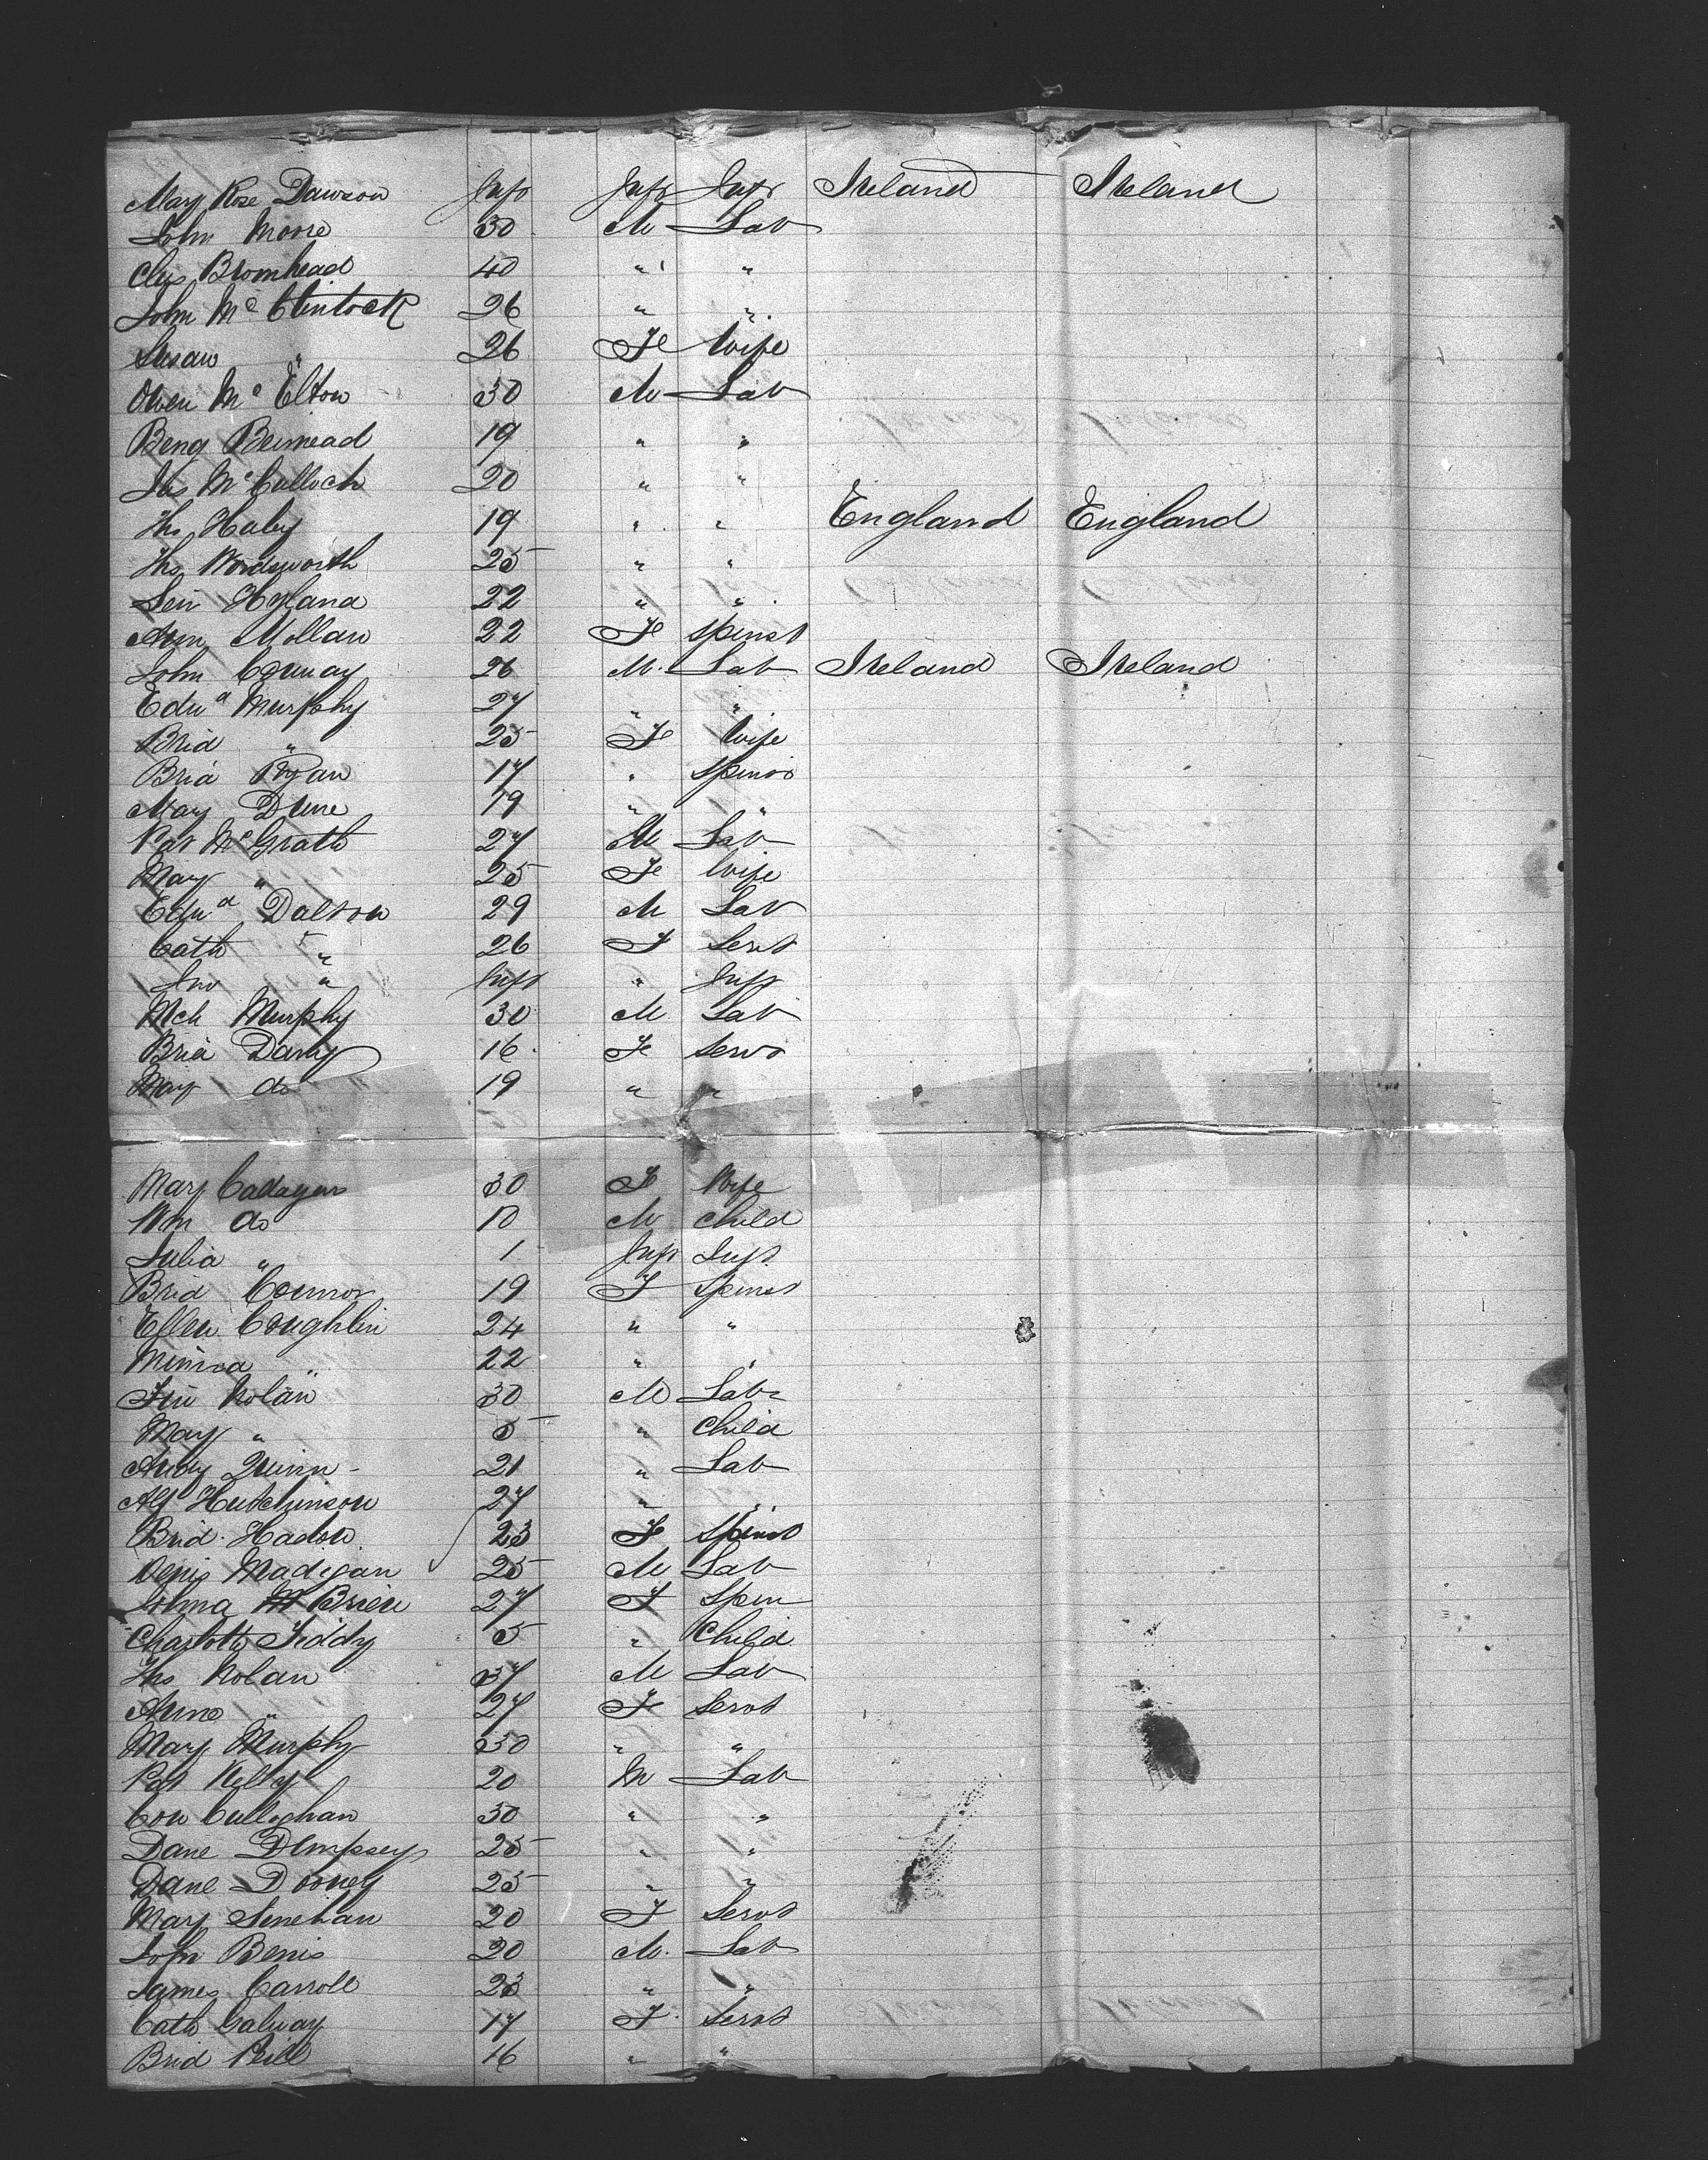 Mary Rose Dawson Inft Inft Inft Ireland Ireland
John Moore 30 M Lab
Chs Bromhead 40 " "
John McClintock 26 " "
Susan " 26 Fe Wife
Owen McElton 30 M Lab
Beng 19 " "
Jas McCulloch 20 " "
Ths Haley 19 " " England England
Ths Wordsworth 25 " "
Hyland 22 " "
Ann Mollan 22 Fe Spinst
John Conway 26 M. Lab Ireland Ireland
Edwd Murphy 27 " "
Brid " 25 Fe Wife
Brid Ryan 17 " Spinst
Mary Dune 19 " "
Pat McGrath 27 M Lab
Mary " 25 Fe Wife
Edwd Dalton 29 M Lab
Cath " 26 F Servt
Jno " Inft " Inft
Mch Murphy 30 M Lab
Brid Darby 16 Fe Servt
Mary do 19 " "
Mary Callagan 30 Fe Wife
Wm do 10 M Child
Julia " 1 Inft Inft
Brid Connor 19 F Spinst
Ellen Coughlin 24 " "
" 22 " "
Nolan 30 M Lab
Mary " 5 " Child
Andy Quinn 21 " Lab
Alf Hutchinson 27 " "
Brid 23 F Spinst
Denis Madigan 25 M Lab
McBrien 27 F Spin
Charlotte 5 " Child
Ths Nolan 37 M Lab
Anne " 27 Fe Servt
Mary Murphy 30 " "
Pat Kelly 20 M Lab
Con Cullaghan 30 " "
Dane Dempsey 25 " "
Dane Dooney 25 " "
Mary Lenehan 20 F Servt
John Benis 20 M. Lab
James Carroll 23 " "
Cath Galway 17 F. Servt
Brid 16 " "